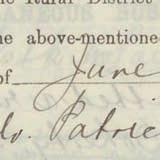 Rural District
the above-mentione
of June
Patric